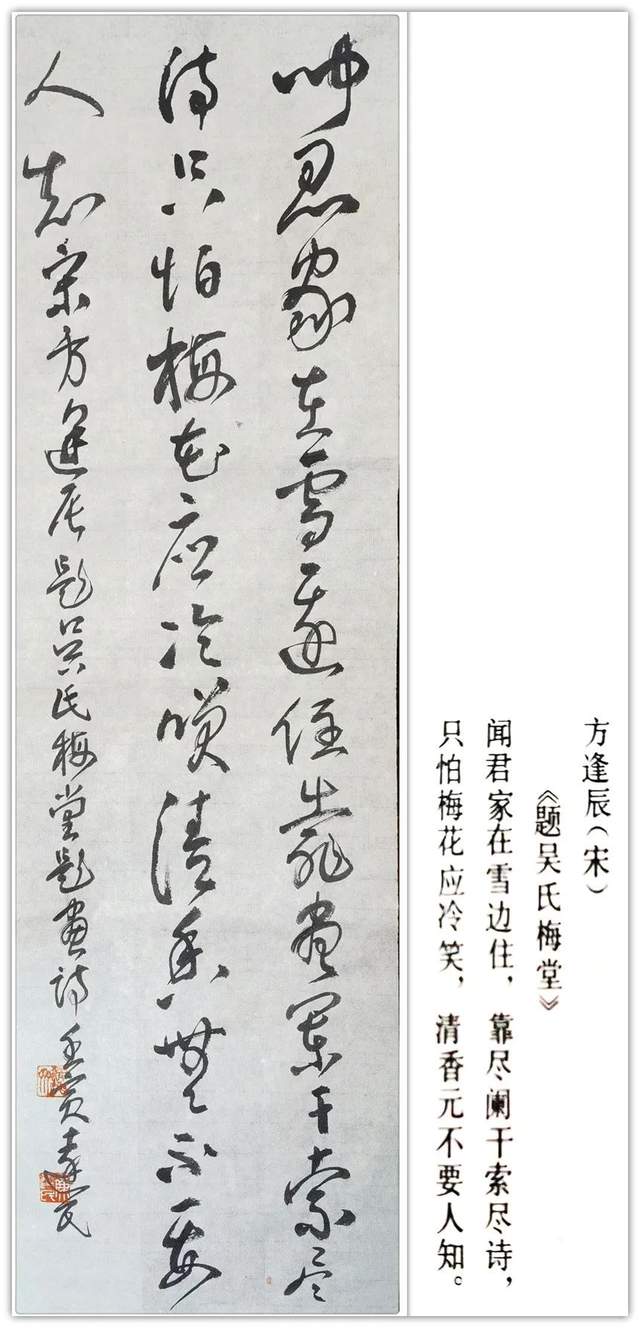 家在雪邊住靠盡闌干索尽
詩只怕梅花应冷咲清香無不要
人知宋方逢辰題吳氏梅堂題畫詩壬寅春
方逢辰（宋）
《题吴氏梅堂》
闻君家在雪边住，靠尽阑干索尽诗，
只怕梅花应冷笑，清香元不要人知。